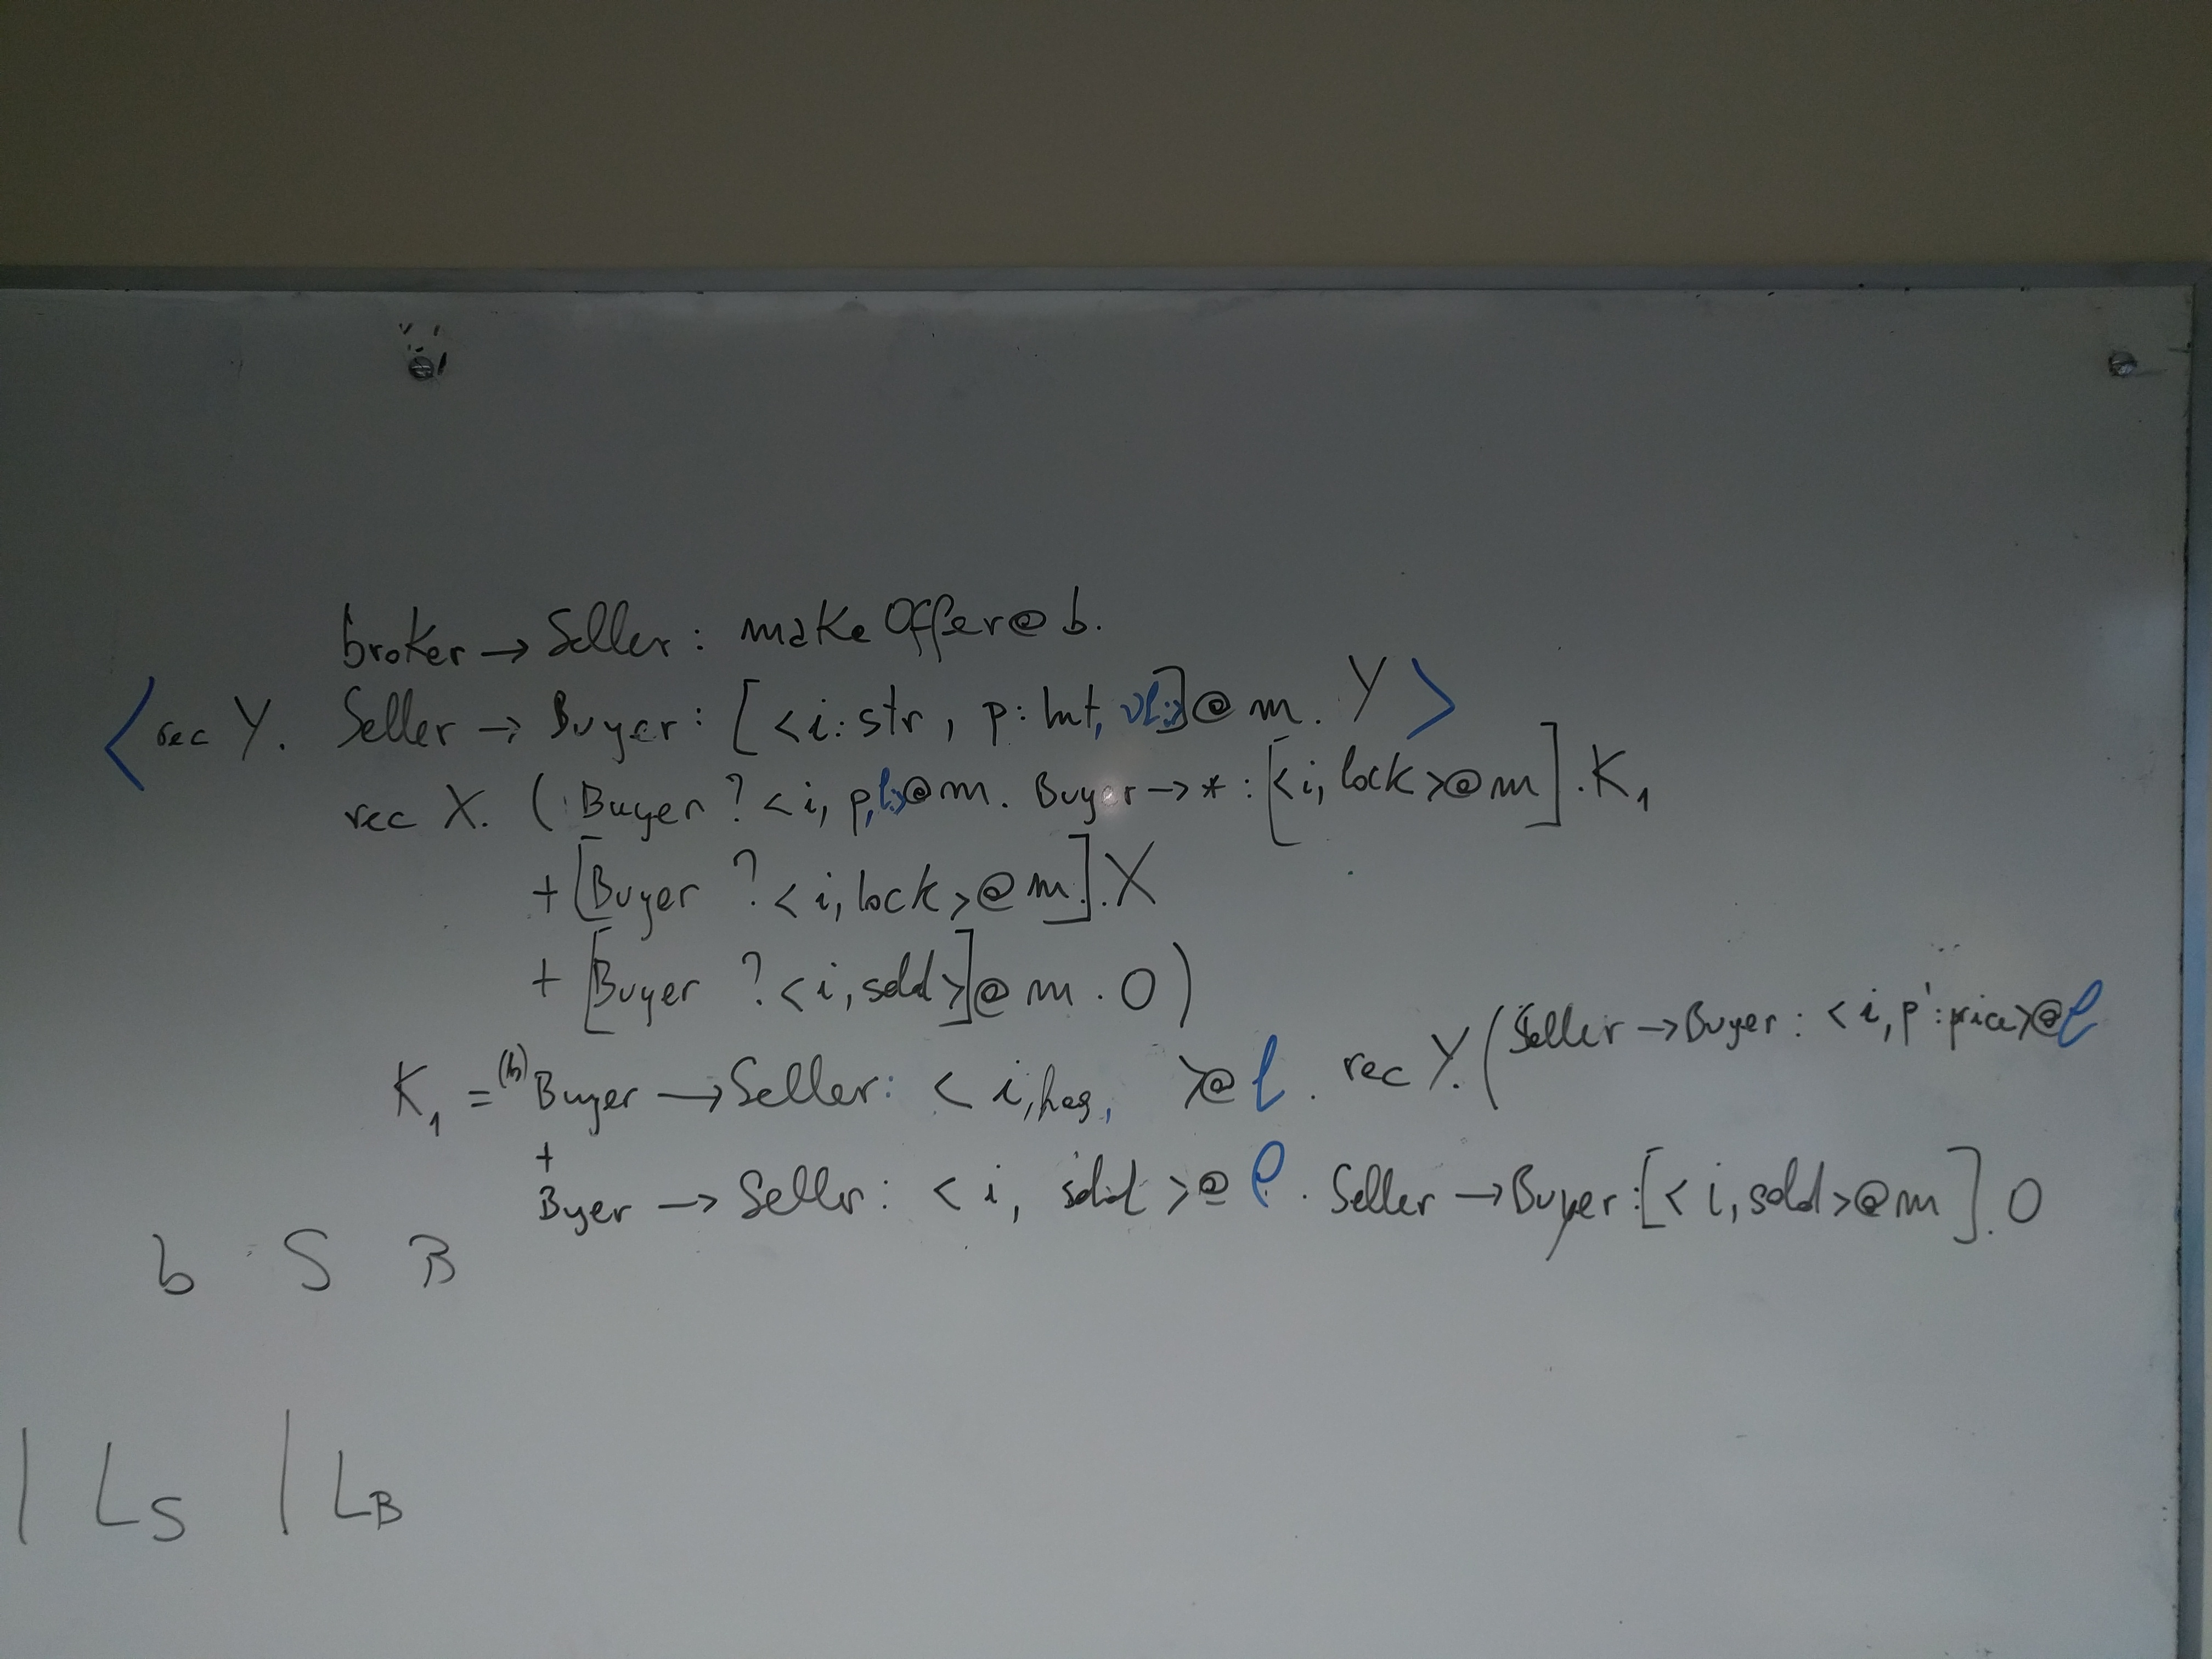 broker → Seller : make Offer @ b.
< rec Y. Seller → Buyer : [ < i : str , p : Int, νl:>] @ m . Y >
rec X. ( Buyer ? < i, p,l> @ m . Buyer → * : [< i, lock > @ m ] . K₁
+ [Buyer ? < i, lock > @ m ] . X
+ [Buyer ? < i, sold >] @ m . O )
K₁ = Buyer → Seller : < i, hag, > @ l . rec Y. ( Seller → Buyer : < i, p' : price > @ l
+
Byer → Seller : < i, sold > @ l . Seller → Buyer : [ < i, sold > @ m ] . O
b S B
| L_S | L_B